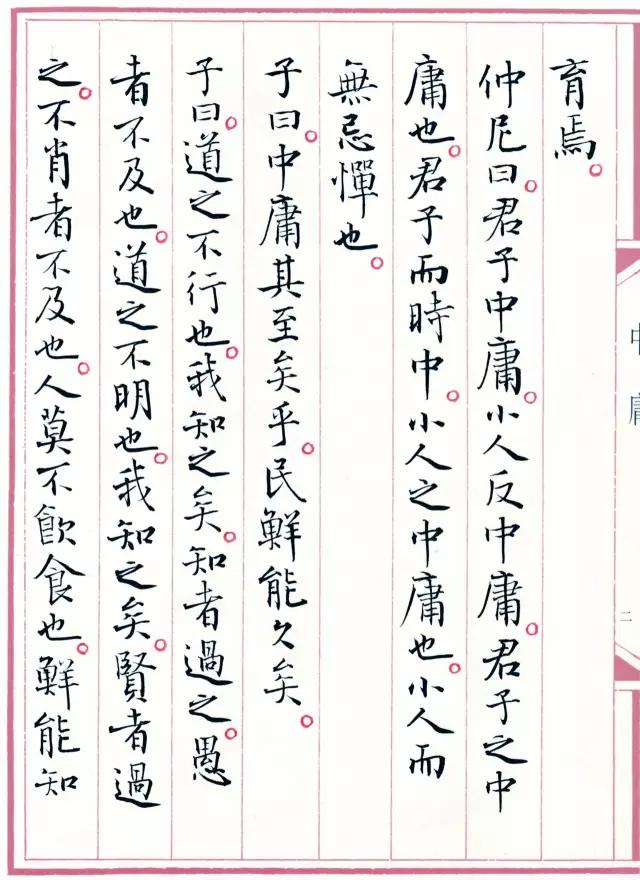 育焉。
仲尼曰。君子中庸。小人反中庸。君子之中
庸也。君子而時中。小人之中庸也。小人而
無忌憚也。
子曰。中庸其至矣乎。民鮮能久矣。
子曰。道之不行也。我知之矣。知者過之。愚
者不及也。道之不明也。我知之矣。賢者過
之。不肖者不及也。人莫不飲食也。鮮能知
中庸
二